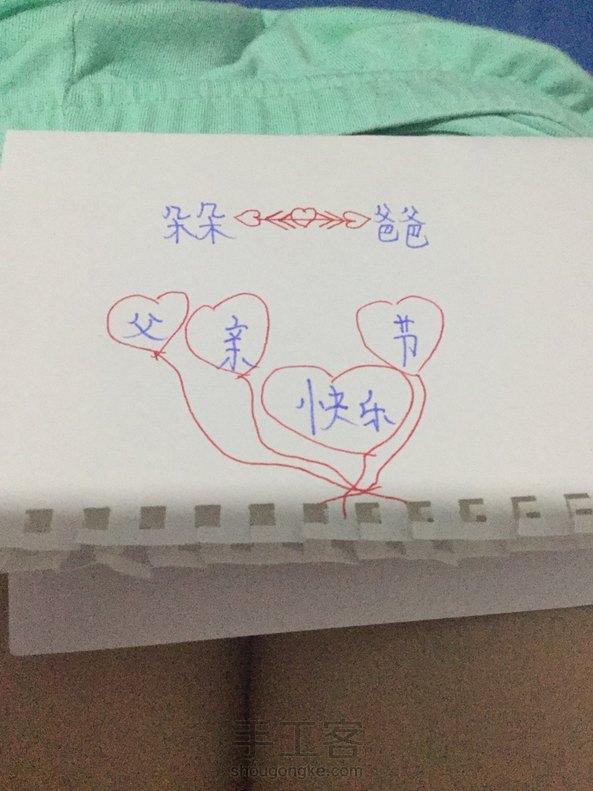 朵朵 爸爸
父亲节
快乐
手工客
shougongke.com